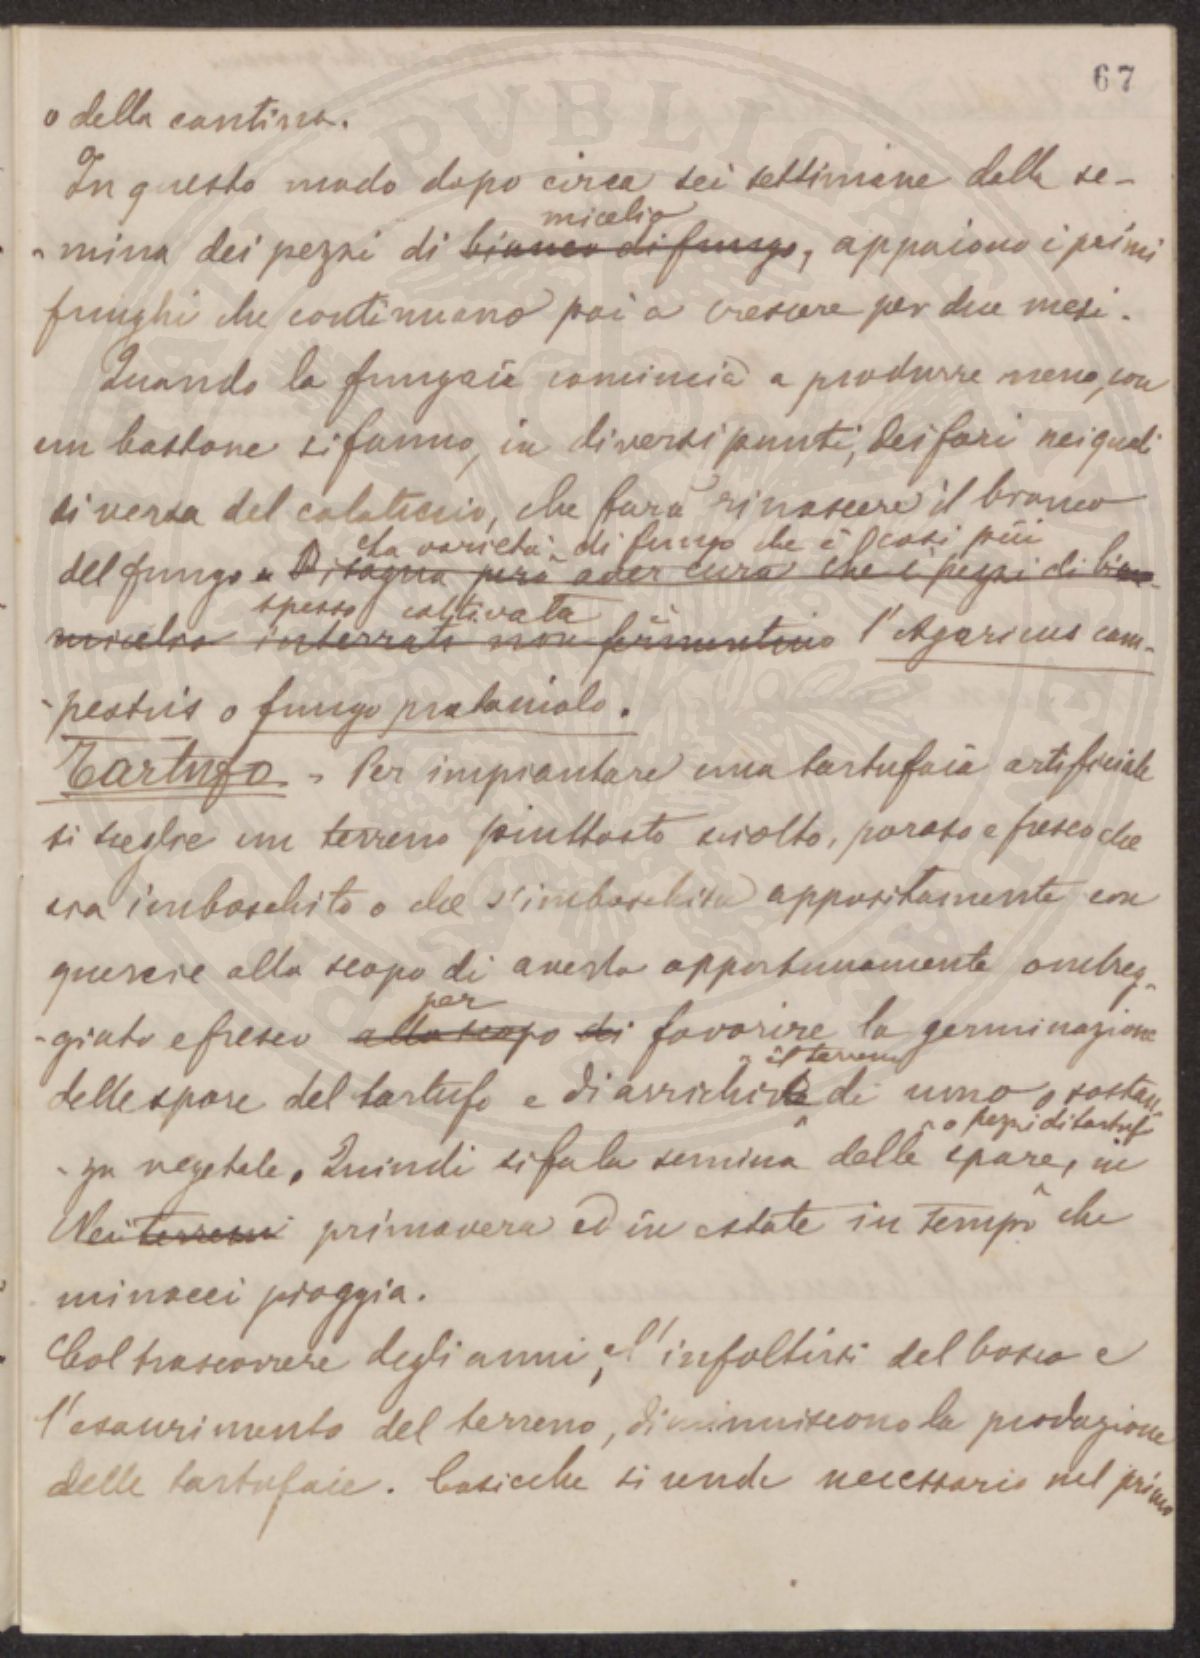 67
o della cantina.
In questo modo dopo circa sei settimane dalla se-
micelio
-mina dei pezzi di bianco di fungo, appaiono i primi
funghi che continuano poi a crescere per due mesi.
Quando la fungaia comincia a produrre meno, con
un bastone si fanno, in diversi punti, dei fori nei quali
si versa del colaticcio, che farà rinascere il bianco
La varietà di fungo che è così più
del fungo. Bisogna però aver cura che i pezzi di bian
spesso coltivata è
micelio interrati non fermentino l'Agaricus cam-
-pestris o fungo prataiolo.
Tartufo - Per impiantare una tartufaia artificiale
si sceglie un terreno piuttosto sciolto, poroso e fresco che
sia imboschito o che s'imboschisca appositamente con
quercie allo scopo di averlo opportunamente ombreg-
per
-giato e fresco allo scopo di favorire la germinazione
il terreno
delle spore del tartufo e di arricchire di umo, sostan-
o pezzi di tartufi
-za vegetale. Quindi si fa la semina delle spore, in
Nei terreni primavera ed in estate in tempo che
minacci pioggia.
Col trascorrere degli anni, l'infoltirsi del bosco e
l'esaurimento del terreno, diminuiscono la produzione
delle tartufaie. Cosicche si rende necessario nel primo